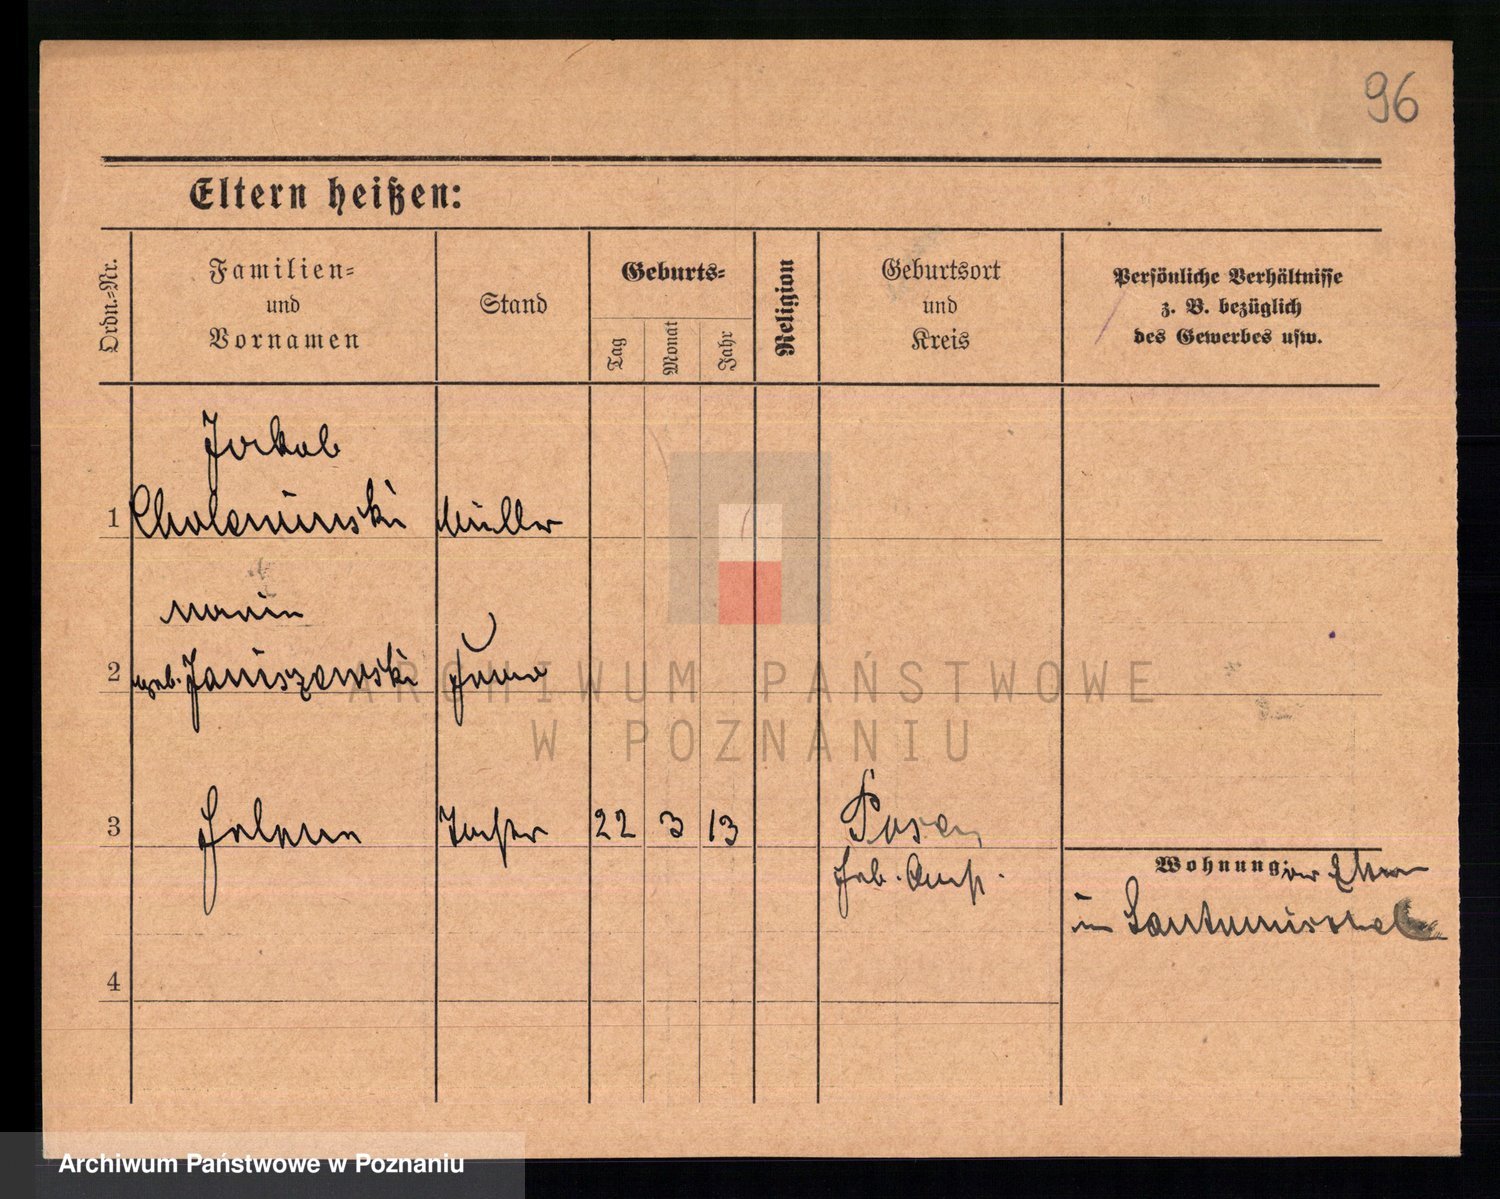 96
Eltern heißen:
Ordn.=Nr.
Familien=
und
Vornamen
Stand
Geburts=
Tag
Monat
Jahr
Religion
Geburtsort
und
Kreis
Persönliche Verhältnisse
z. B. bezüglich
des Gewerbes usw.
Jakob
1 Choleminski Müller
Maria
2 geb. Janiszewski Frau
3 Helene Tochter 22 3 13 Posen
Geb. Anst.
Wohnung: der Eltern
in Santomischel
4
ARCHIWUM PAŃSTWOWE
W POZNANIU
Archiwum Państwowe w Poznaniu